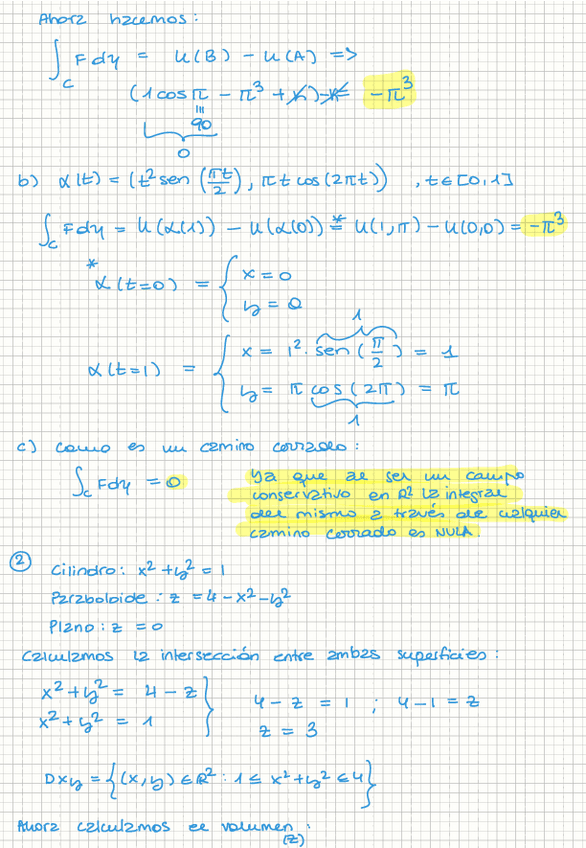 Ahora hacemos:
∫_C F dγ = U(B) - U(A) =>
(1 cos π - π³ + k) - k = -π³
≡
90
0
b) α(t) = (t² sen (πt/2), πt cos(2πt)) , t ∈ [0,1]
∫_C F dγ = U(α(1)) - U(α(0)) =* U(1,π) - U(0,0) = -π³
* α(t=0) = { x = 0
y = 0
1
α(t=1) = { x = 1² · sen(π/2) = 1
y = π cos(2π) = π
1
c) Como es un camino cerrado:
∫_C F dγ = 0
Ya que al ser un campo
conservativo en R² la integral
del mismo a través de cualquier
camino cerrado es NULA.
② Cilindro: x² + y² = 1
Paraboloide: z = 4 - x² - y²
Plano: z = 0
Calculamos la intersección entre ambas superficies:
x² + y² = 4 - z }
x² + y² = 1
4 - z = 1 ; 4 - 1 = z
z = 3
Dxy = {(x,y) ∈ R² : 1 ≤ x² + y² ≤ 4}
Ahora calculamos el volumen:
(z)